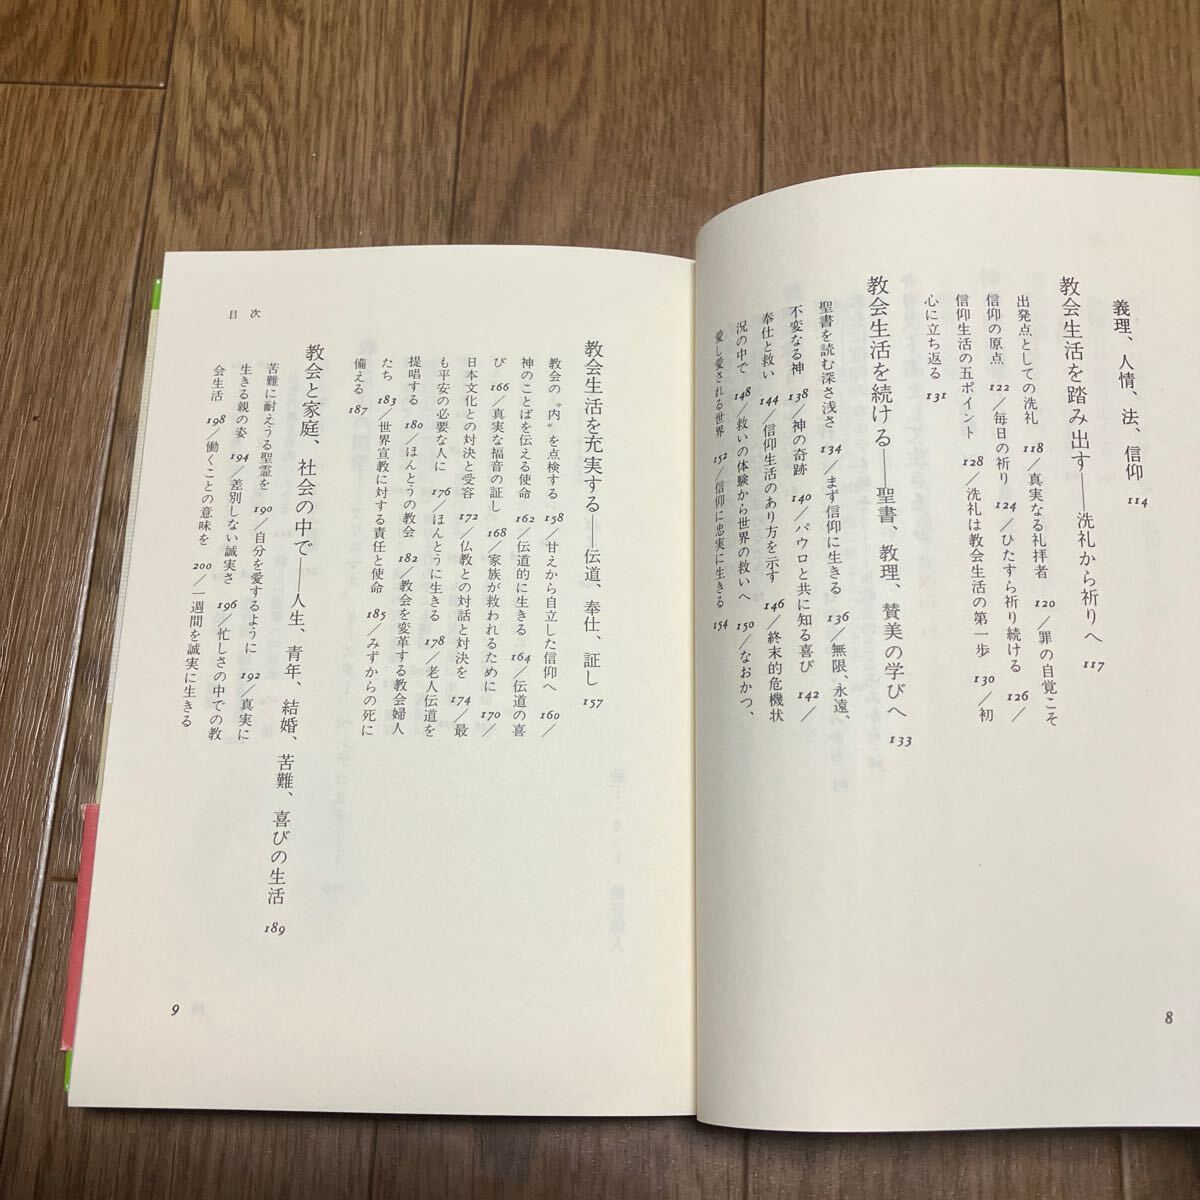 義理、人情、法、信仰 114
教会生活を踏み出す――洗礼から祈りへ 117
出発点としての洗礼 118／真実なる礼拝者 120／罪の自覚こそ
信仰の原点 122／毎日の祈り 124／ひたすら祈り続ける 126／
信仰生活の五ポイント 128／洗礼は教会生活の第一歩 130／初
心に立ち返る 131
教会生活を続ける――聖書、教理、賛美の学びへ 133
聖書を読む深さ浅さ 134／まず信仰に生きる 136／無限、永遠、
不変なる神 138／神の奇跡 140／パウロと共に知る喜び 142／
奉仕と救い 144／信仰生活のあり方を示す 146／終末的危機状
況の中で 148／救いの体験から世界の救いへ 150／なおかつ、
愛し愛される世界 152／信仰に忠実に生きる 154
8
教会生活を充実する――伝道、奉仕、証し 157
教会の〝内〟を点検する 158／甘えから自立した信仰へ 160／
神のことばを伝える使命 162／伝道的に生きる 164／伝道の喜
び 166／真実な福音の証し 168／家族が救われるために 170／
日本文化との対決と受容 172／仏教との対話と対決を 174／最
も平安の必要な人に 176／ほんとうに生きる 178／老人伝道を
提唱する 180／ほんとうの教会 182／教会を変革する教会婦人
たち 183／世界宣教に対する責任と使命 185／みずからの死に
備える 187
教会と家庭、社会の中で――人生、青年、結婚、苦難、喜びの生活 189
苦難に耐えうる聖霊を 190／自分を愛するように 192／真実に
生きる親の姿 194／差別しない誠実さ 196／忙しさの中での教
会生活 198／働くことの意味を 200／一週間を誠実に生きる
目 次
9